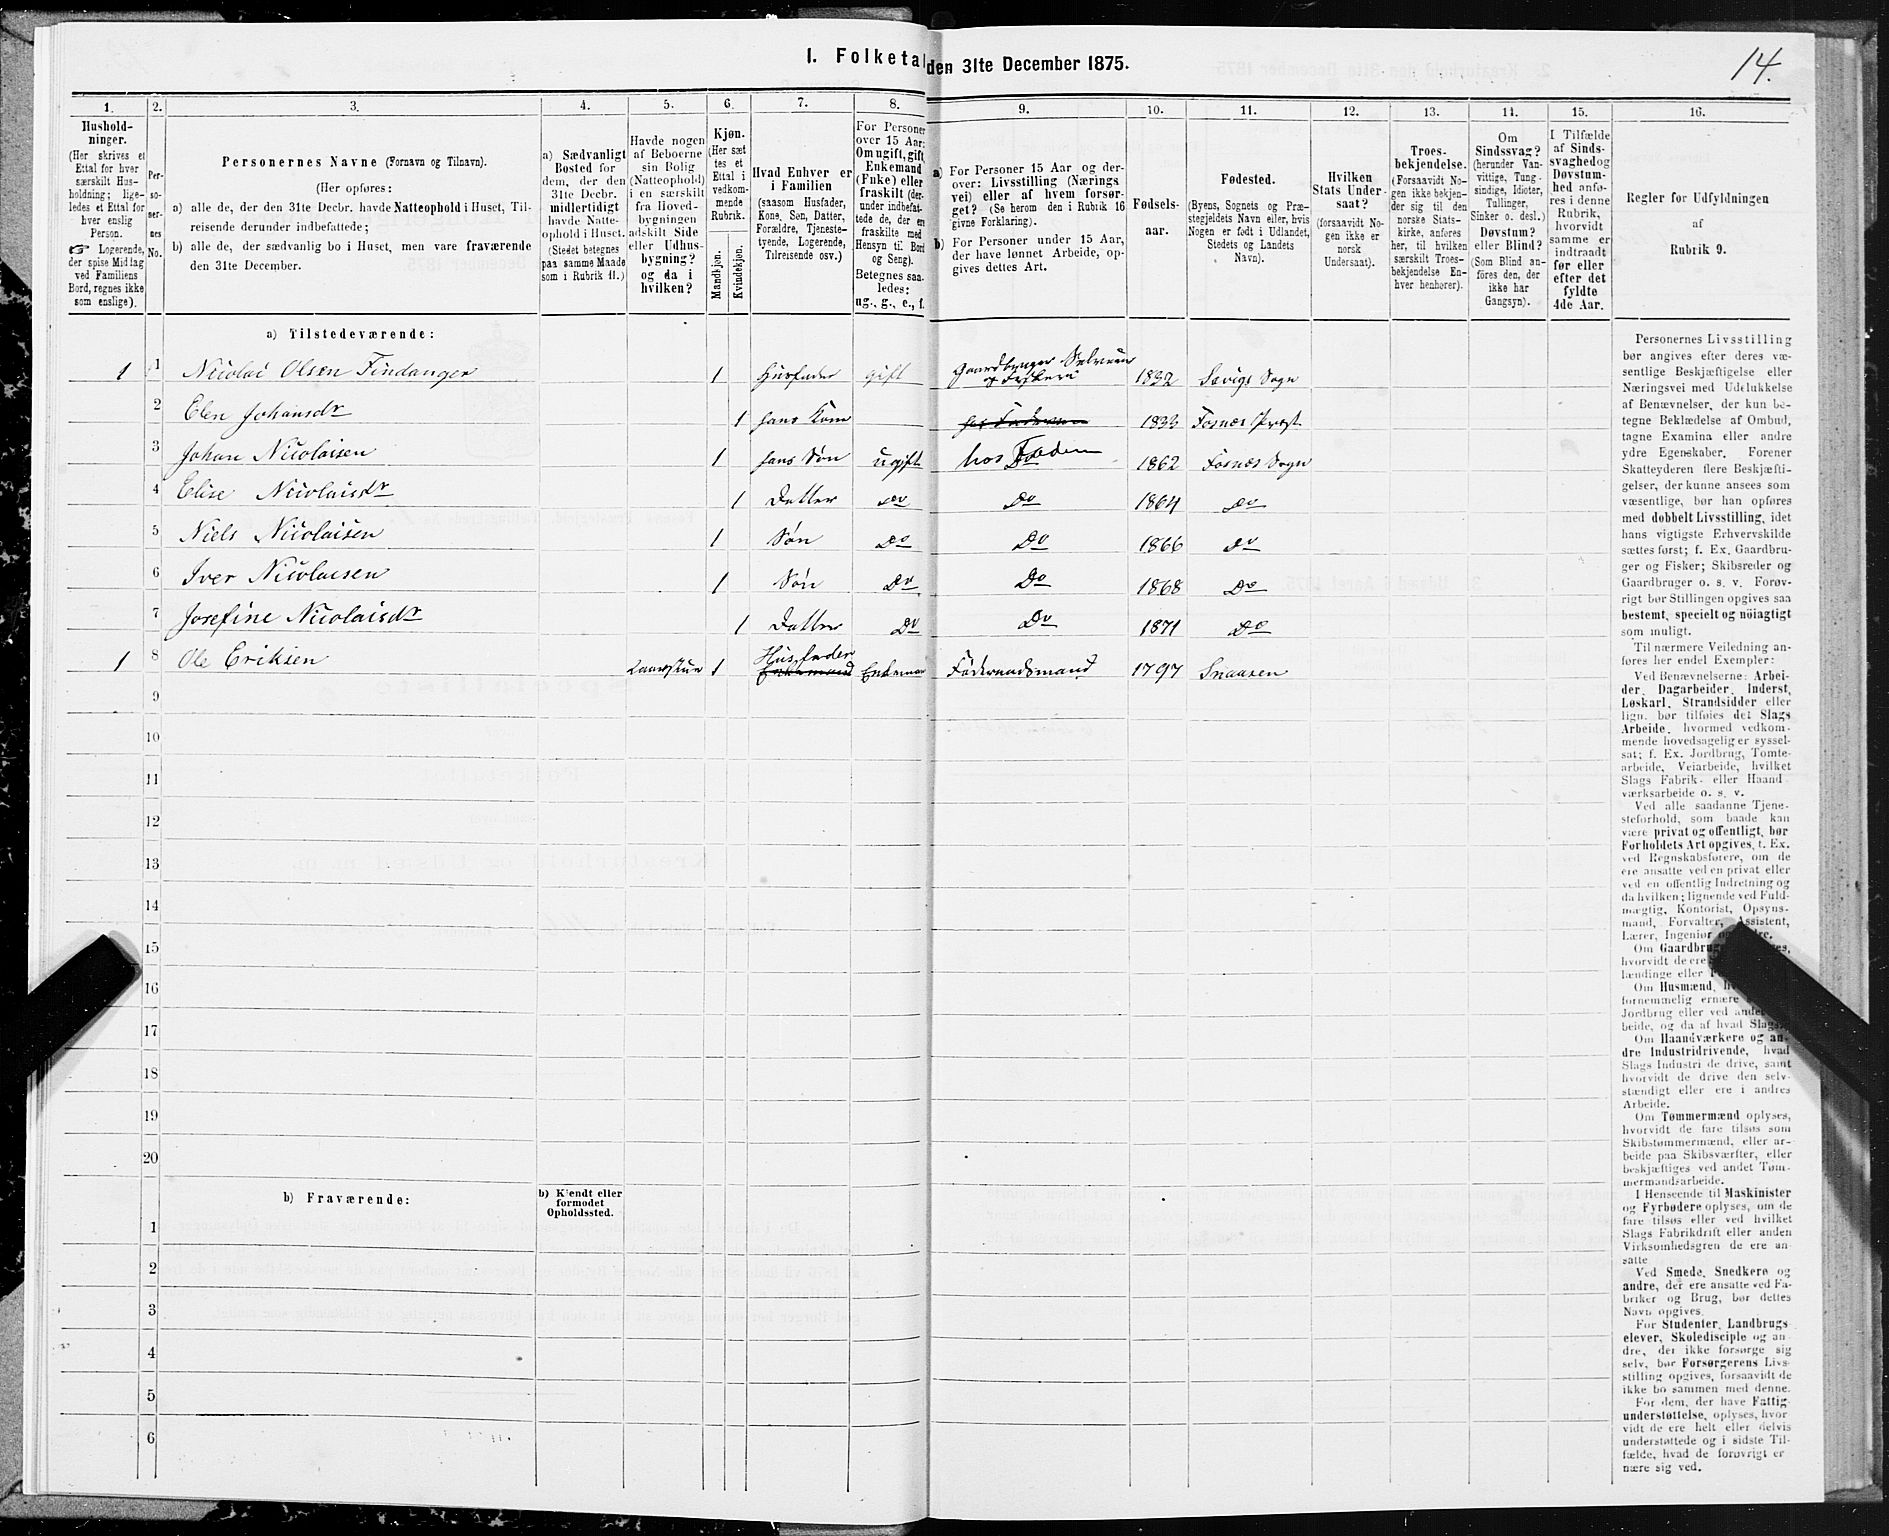 I. Folketal den 31te December 1875.
14.
1. 2. 3. 4. 5. 6. 7. 8. 9. 10. 11. 12. 13. 14. 15. 16.
Hushold-
ninger.
(Her skrives et
Ettal for hver
særskilt Hus-
holdning; lige-
ledes et Ettal for
hver enslig
Person.
☞ Logerende,
der spise Middag
ved Familiens
Bord, regnes ikke
som enslige).
Per-
so-
ner-
nes
No.
Personernes Navne (Fornavn og Tilnavn).
(Her opføres:
a) alle de, der den 31te Decbr. havde Natteophold i Huset, Til-
reisende derunder indbefattede;
b) alle de, der sædvanlig bo i Huset, men vare fraværende
den 31te December.
a) Sædvanligt
Bosted for
dem, der den
31te Decbr.
midlertidigt
havde Natte-
ophold i Huset.
(Stedet betegnes
paa samme Maade
som i Rubrik 11.)
Havde nogen
af Beboerne
sin Bolig
(Natteophold)
i en særskilt
fra Hoved-
bygningen
adskilt Side
eller Udhus-
bygning?
og da i
hvilken?
Kjøn.
(Her sæt
tes et
Ettal i
vedkom-
mende
Rubrik.
Mandkjøn.
Kvindekjøn.
Hvad Enhver er
i Familien
(saasom Husfader,
Kone, Søn, Datter,
Forældre, Tjeneste-
tyende, Logerende,
Tilreisende osv.)
For Personer
over 15 Aar:
Om ugift, gift,
Enkemand
(Enke) eller
fraskilt (der-
under indbefat-
tede de, der ere
fraskilte med
Hensyn til Bord
og Seng).
Betegnes saa-
ledes:
ug., g., e., f.
a) For Personer 15 Aar og der-
over: Livsstilling (Nærings
vei) eller af hvem forsør-
get? (Se herom den i Rubrik 16
givne Forklaring).
b) For Personer under 15 Aar,
der have lønnet Arbeide, op-
gives dettes Art.
Fødsels-
aar.
Fødested.
(Byens, Sognets og Præ-
stegjeldets Navn eller, hvis
Nogen er født i Udlandet,
Stedets og Landets
Navn).
Hvilken
Stats Under-
saat?
(forsaavidt No-
gen ikke er
norsk
Undersaat).
Troes-
bekjendelse.
(Forsaavidt No-
gen ikke bekjen-
der sig til den
norske Stats-
kirke, anføres
her, til hvilken
særskilt Troes-
bekjendelse En-
hver henhører).
Om
Sindssvag?
(herunder Van-
vittige, Tung-
sindige, Idioter,
Tullinger,
Sinker o. desl.)
Døvstum?
eller Blind?
(Som Blind an-
føres den, der
ikke har
Gangsyn).
I Tilfælde
af Sinds-
svaghed og
Døvstum-
hed anfø-
res i denne
Rubrik,
hvorvidt
samme er
indtraadt
før eller
efter det
fyldte
4de Aar.
Regler for Udfyldningen
af
Rubrik 9.
a) Tilstedeværende:
1 1 Nicolai Olsen Findanger 1 Husfader gift Gaardbruger Selveier og Fiskeri 1832 Sævigs Sogn
2 Elen Johansdr 1 hans Kone 1833 Fosnæs Præst
3 Johan Nicolaisen 1 hans Søn ugift hos Faderen 1862 Fosnæs Sogn
4 Elise Nicolaisdr 1 Datter Do Do 1864 Do
5 Niels Nicolaisen 1 Søn Do Do 1866 Do
6 Iver Nicolaisen 1 Søn Do Do 1868 Do
7 Josefine Nicolaisdr 1 Datter Do Do 1871 Do
1 8 Ole Eriksen 1 Husfader Enkeman Føderaadsmand 1797 Snaasen
9
10
11
12
13
14
15
16
17
18
19
20
b) Fraværende:
b) Kjendt eller
formodet
Opholdssted.
1
2
3
4
5
6
Personernes Livsstilling
bør angives efter deres væ-
sentlige Beskjæftigelse eller
Næringsvei med Udelukkelse
af Benævnelser, der kun be-
tegne Beklædelse af Ombud,
tagne Examina eller andre
ydre Egenskaber. Forener
Skatteyderen flere Beskjæfti-
gelser, der kunne ansees som
væsentlige, bør han opføres
med dobbelt Livsstilling, idet
hans vigtigste Erhvervskilde
sættes først; f. Ex. Gaardbru-
ger og Fisker; Skibsreder og
Gaardbruger o. s. v. Forøv-
rigt bør Stillingen opgives saa
bestemt, specielt og nöiagtigt
som muligt.
Til nærmere Veiledning an-
føres her endel Exempler:
Ved Benævnelserne: Arbei-
der, Dagarbeider, Inderst,
Løskarl, Strandsidder eller
lign. bør tilføies det Slags
Arbeide, hvormed vedkom-
mende hovedsagelig er syssel-
sat; f. Ex. Jordbrug, Tomte-
arbeide, Veiarbeide, hvilket
Slags Fabrik- eller Haand-
værksarbeide o. s. v.
Ved alle saadanne Tjene-
steforhold, som baade kan
være privat og offentligt, bør
Forholdets Art opgives, f. Ex.
ved Regnskabsførere, om de
ere ansatte ved en privat eller
ved en offentlig Indretning og
da hvilken; lignende ved Fuld-
mægtig, Kontorist, Opsyns-
mand, Forvalter, Assistent,
Lærer, Ingeniør og
Om
hvorvidt de ere
lændinge eller
Om Husmænd,
fornemmelig ernære
Jordbrug eller ved
beide, og da af hvad Slags.
Om Haandværkere og an-
dre Industridrivende, hvad
Slags Industri de drive, samt
hvorvidt de drive den selv-
stændigt eller ere i andres
Arbeide.
Om Tømmermænd oplyses,
hvorvidt de fare tilsøs som
Skibstømmermænd, eller ar-
beide paa Skibsværfter, eller
beskjæftiges ved andet Tøm-
mermandsarbeide.
I Henseende til Maskinister
og Fyrbødere oplyses, om de
fare tilsøs eller ved hvilket
Slags Fabrikdrift eller anden
Virksomhedsgren de ere an-
satte
Ved Smede, Snedkere og
andre, der ere ansatte ved Fa-
briker og Brug, bør dettes
Navn opgives.
For Studenter, Landbrugs-
elever, Skoledisciple og an-
dre, der ikke forsørge sig
selv, bør Forsørgerens Livs-
stilling opgives, forsaavidt de
ikke bo sammen med denne.
For dem, der have Fattig-
understøttelse, oplyses, hvor-
vidt de ere helt eller delvis
understøttede og i sidste Til-
fælde, hvad de forøvrigt er-
nære sig ved.